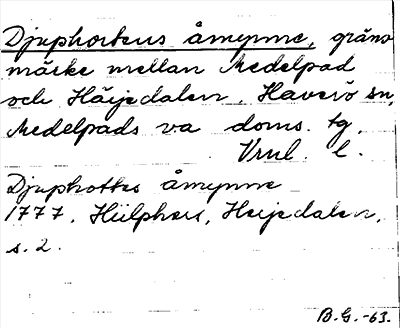 Djuphortens åmynne, gräns
märke mellan Medelpad
och Härjedalen, Haverö sn,
Medelpads va doms. tg.
Vrul. l.
Djuphottes åmynne
1777. Hülphers, Herjedalen,
s. 2.
B.G.-63.